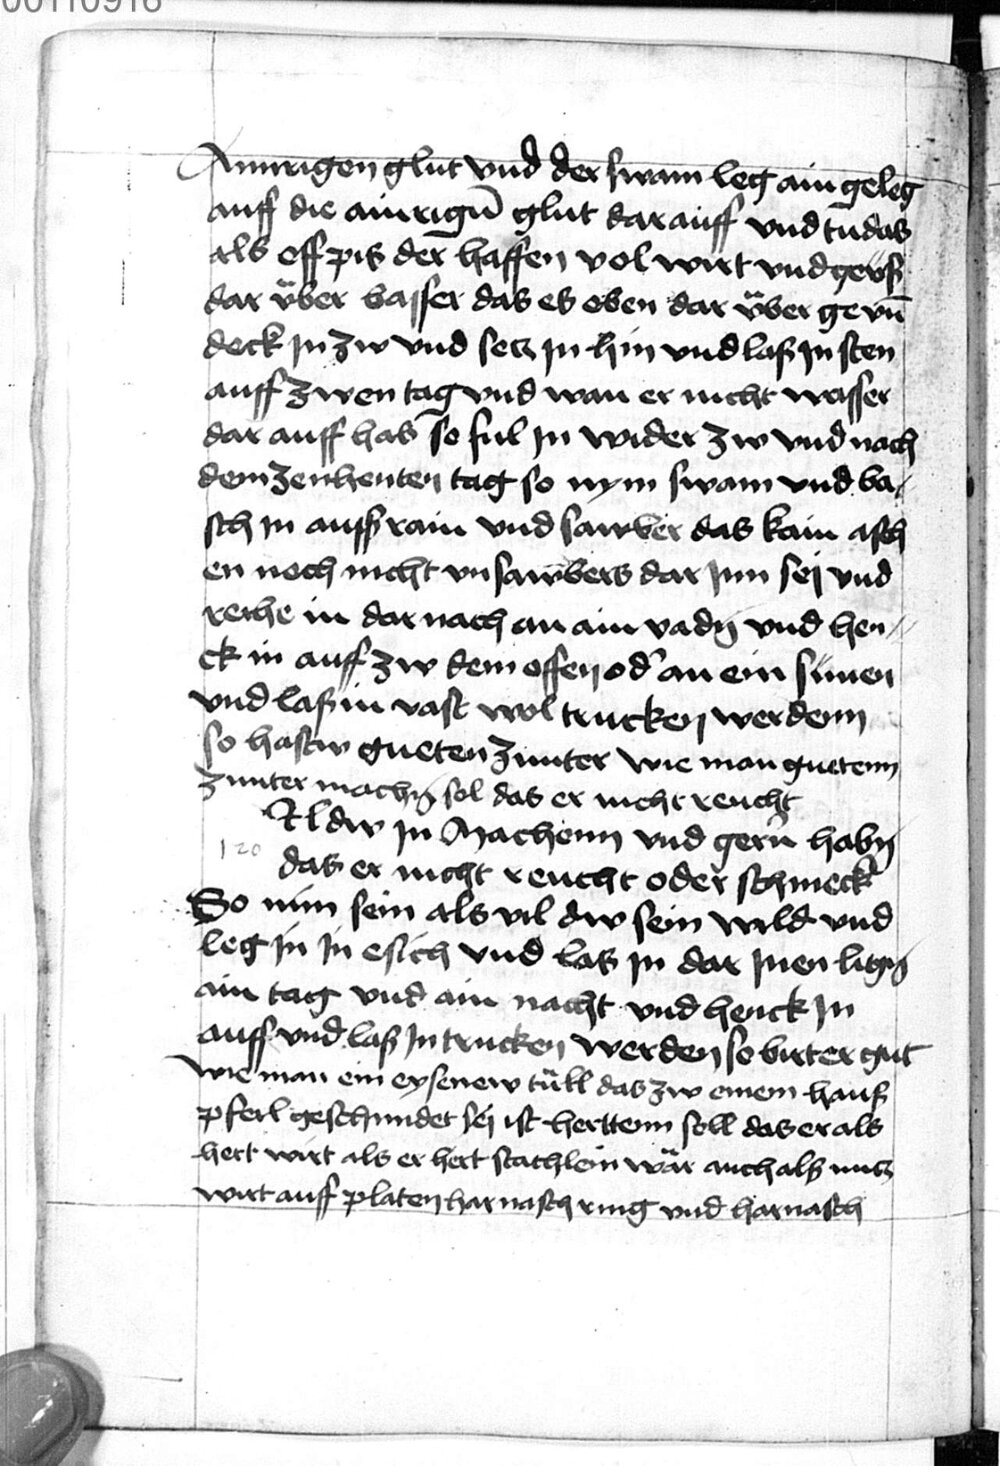 00110916
Ainrigen glut vnd der swam leg ain geleg
auff die ainrigū glut dar auff vnd tu das
als off pis der haffen vol wirt vnd gews
dar v̈ber basser das es eben dar v̈ber ge vn̄
deck in zw vnd secz in hin vnd las in sten
auff zwen tag vnd wan er nicht wasser
dar auff hab so ful in wider zw vnd nach
dem zenhenten tag so nym swam vnd ba
sch in auss rain vnd sawber das kain asch
en noch nicht vnsawbers dar inn sej vnd
reche in dar nach an ain vadn̄ vnd hen
ck in auff zw dem offen od' an ein sunen
vnd las in vast wol trucken werdenn
so hastw gueten zunter wie man guetenn
zunter machn̄ sol das er nicht reucht
Wildw in Machenn vnd gern habn̄
120
das er nicht reucht oder schmeck
So nim sein als vil dw sein wild vnd
leg in in esich vnd las in dar inen lign̄
ain tag vnd ain nacht vnd henck in
auff vnd las in trucken werden so birt er gut
wie man ein eysenew tüll das zw einem haus
pferl geschmidet sej ist herttenn soll das er als
hert wirt als er hert stachlein wär auch als nucz
wirt auff platen harnasch ring vnd harnasch